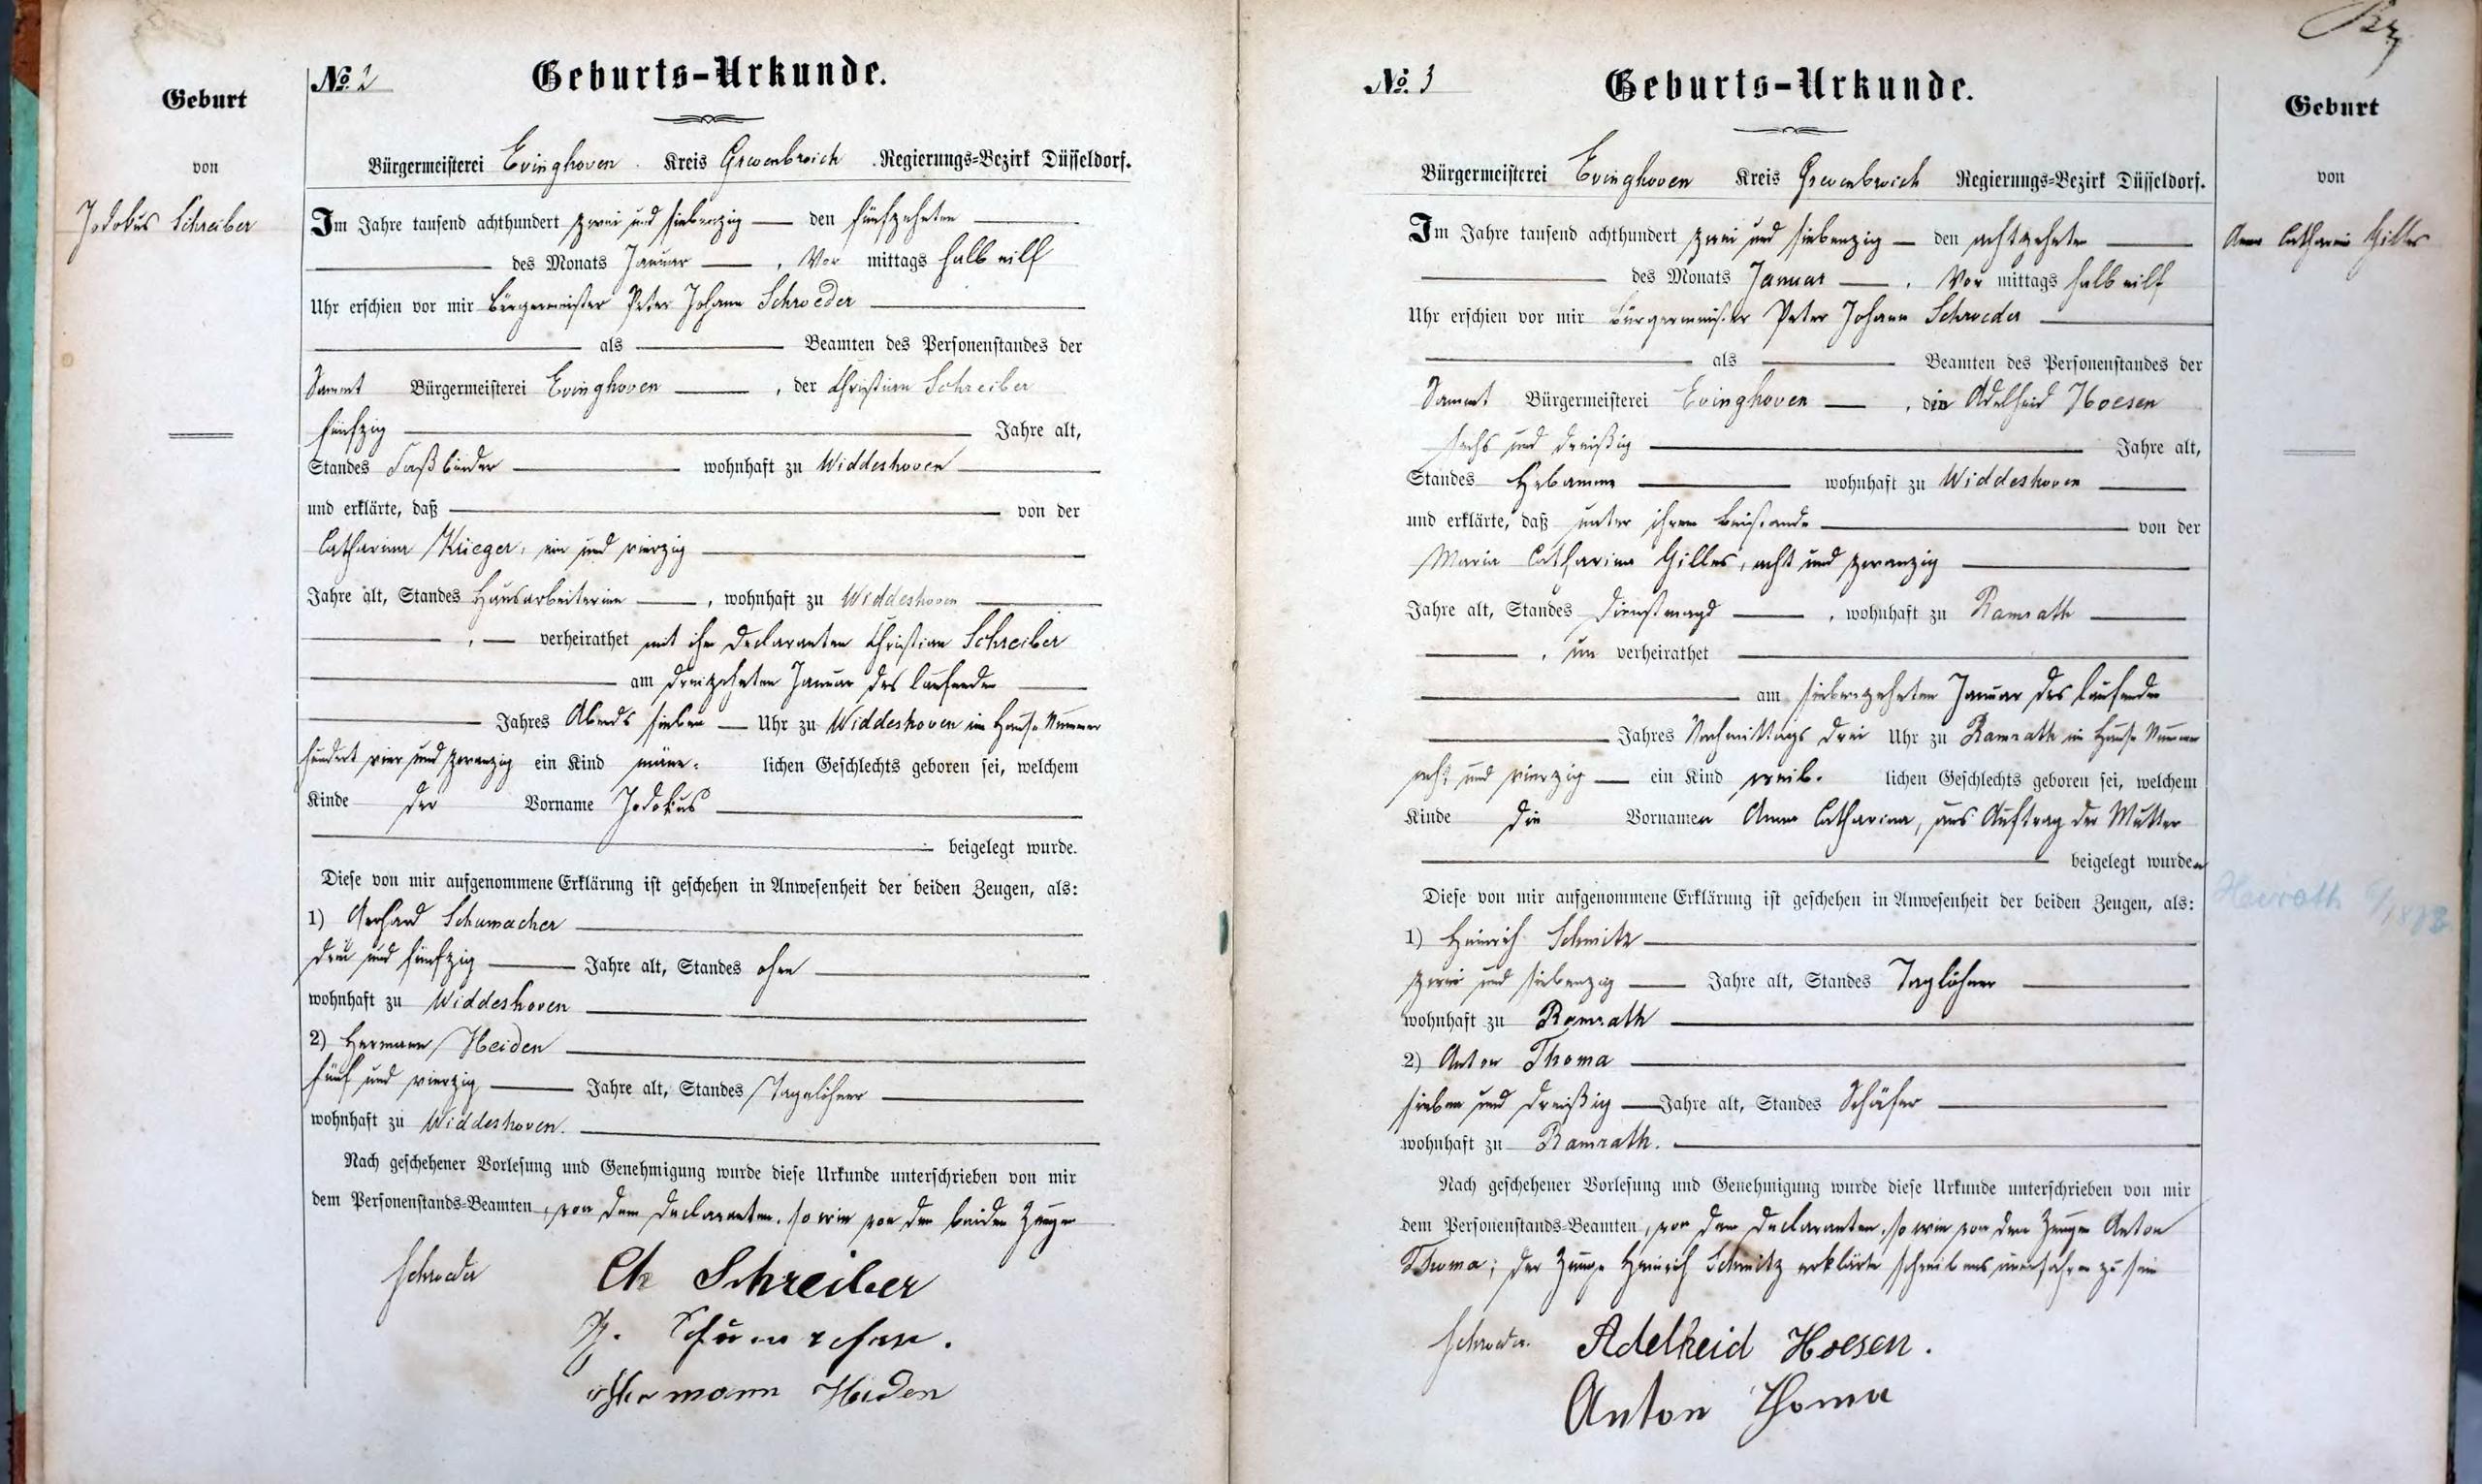 Geburt
von
Jodokus Schreiber
No. 2
Geburts-Urkunde.
Bürgermeisterei Evinghoven. Kreis Grevenbroich. Regierungs-Bezirk Düsseldorf.
Im Jahre tausend achthundert zwei und siebenzig den fünfzehnten
des Monats Januar, Vor mittags halb eilf
Uhr erschien vor mir Bürgermeister Peter Johann Schroeder
als Beamten des Personenstandes der
Sammt Bürgermeisterei Evinghoven, der Christian Schreiber
fünfzig Jahre alt,
Standes Faßbinder wohnhaft zu Widdeshoven
und erklärte, daß von der
Catharina Krieger, ein und vierzig
Jahre alt, Standes Hausarbeiterin, wohnhaft zu Widdeshoven
, verheirathet mit ihm Declaranten Christian Schreiber
am dreizehnten Januar des laufenden
Jahres Abends sieben Uhr zu Widdeshoven im Hause Nummer
hundert vier und zwanzig ein Kind männ- lichen Geschlechts geboren sei, welchem
Kinde der Vorname Jodokus
beigelegt wurde.
Diese von mir aufgenommene Erklärung ist geschehen in Anwesenheit der beiden Zeugen, als:
1) Gerhard Schumacher
drei und fünfzig Jahre alt, Standes ohne
wohnhaft zu Widdeshoven
2) Hermann Heiden
fünf und vierzig Jahre alt, Standes Tagelöhner
wohnhaft zu Widdeshoven.
Nach geschehener Vorlesung und Genehmigung wurde diese Urkunde unterschrieben von mir
dem Personenstands-Beamten, von dem Declaranten, so wie von den beiden Zeugen
Schroeder Ch Schreiber
G. Schumacher.
Hermann Heiden
No. 3
Geburts-Urkunde.
Bürgermeisterei Evinghoven Kreis Grevenbroich Regierungs-Bezirk Düsseldorf.
Im Jahre tausend achthundert zwei und siebenzig den achtzehnten
des Monats Januar, Vor mittags halb eilf
Uhr erschien vor mir Bürgermeister Peter Johann Schroeder
als Beamten des Personenstandes der
Sammt Bürgermeisterei Evinghoven, die Adelheid Hoesen
sechs und dreißig Jahre alt,
Standes Hebamme wohnhaft zu Widdeshoven
und erklärte, daß unter ihrem Beistande von der
Maria Catharina Gilles, acht und zwanzig
Jahre alt, Standes Dienstmagd, wohnhaft zu Ramrath
, un verheirathet
am siebenzehnten Januar des laufenden
Jahres Nachmittags drei Uhr zu Ramrath im Hause Nummer
acht und vierzig ein Kind weib- lichen Geschlechts geboren sei, welchem
Kinde die Vornamen Anna Catharina, aus Auftrag der Mutter
beigelegt wurden
Diese von mir aufgenommene Erklärung ist geschehen in Anwesenheit der beiden Zeugen, als:
1) Heinrich Schmitz
zwei und siebenzig Jahre alt, Standes Taglöhner
wohnhaft zu Ramrath
2) Anton Thoma
sieben und dreißig Jahre alt, Standes Schäfer
wohnhaft zu Ramrath.
Nach geschehener Vorlesung und Genehmigung wurde diese Urkunde unterschrieben von mir
dem Personenstands-Beamten, von dem Declaranten, so wie von dem Zeugen Anton
Thoma; der Zeuge Heinrich Schmitz erklärte schreibensunerfahren zu sein
Schroeder. Adelheid Hoesen.
Anton Thoma
Geburt
von
Anna Catharina Gilles
Heirath